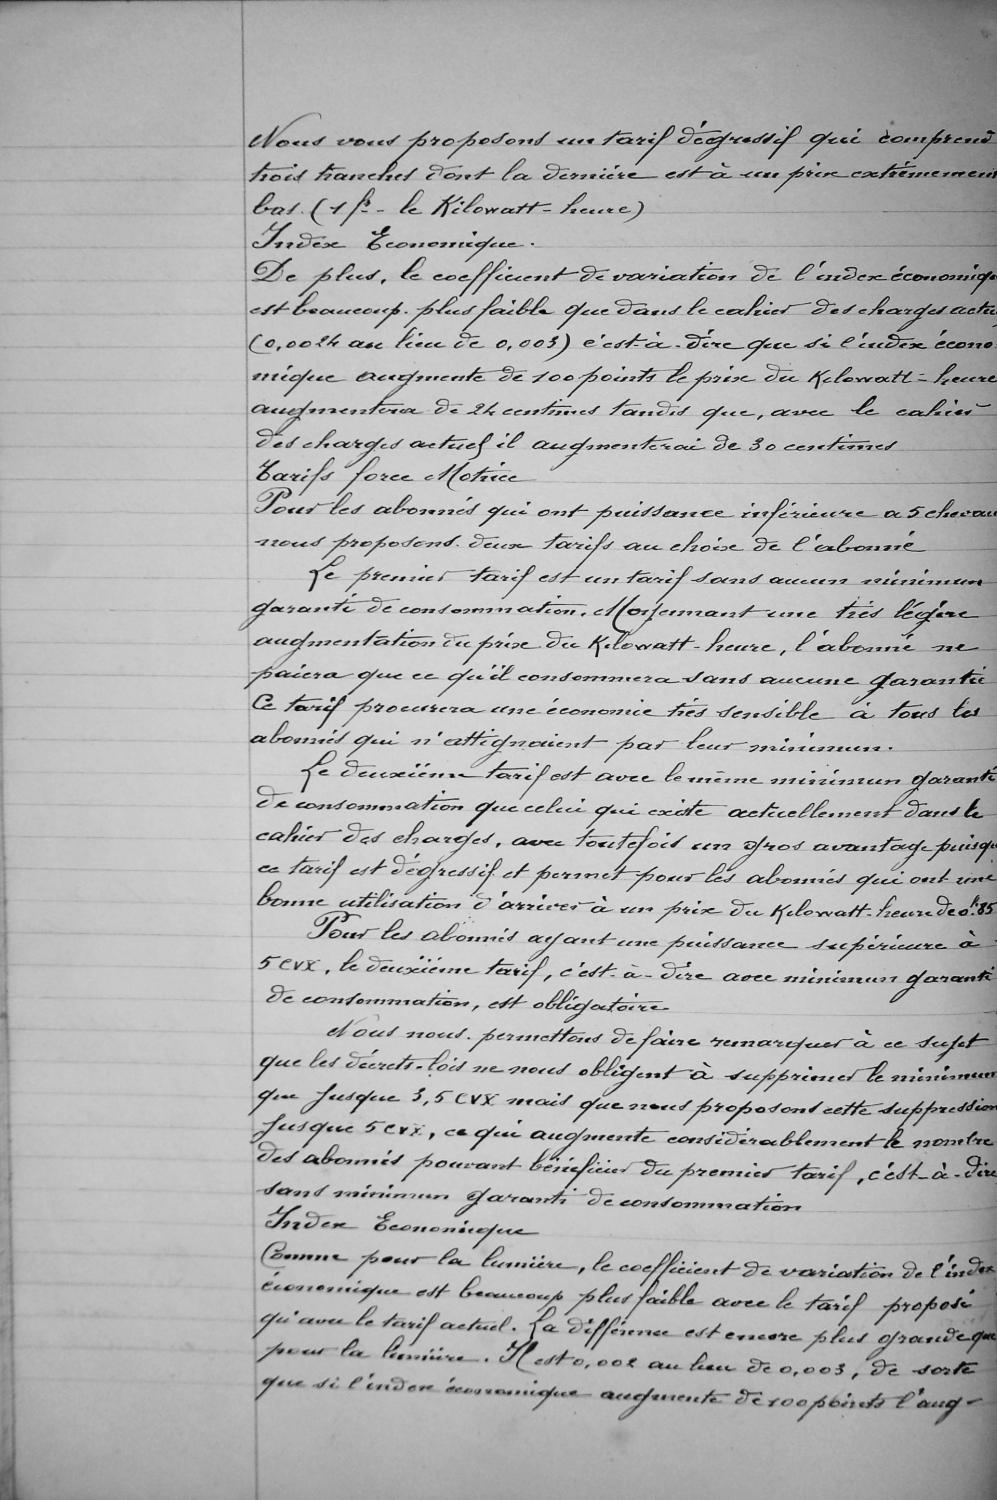 Nous vous proposons un tarif dégressif qui comprend
trois tranches dont la dernière est à un prix extrêmement
bas. (1 fr - le Kilowatt-heure)
Index Economique.
De plus, le coefficient de variation de l'index économiqu
est beaucoup plus faible que dans le cahier des charges actu
(0,0024 au lieu de 0,003) c'est-à-dire que si l'index écono
mique augmente de 100 points le prix du Kilowatt-heure
augmentera de 24 centimes tandis que, avec le cahier
des charges actuel il augmenterai de 30 centimes
Tarifs force Motrice
Pour les abonnés qui ont puissance inférieure a 5 chevau
nous proposons deux tarifs au choix de l'abonné
Le premier tarif est un tarif sans aucun minimun
garanti de consommation. Moyennant une très légère
augmentation du prix du Kilowatt-heure, l'abonné ne
paiera que ce qu'il consommera sans aucune garantie
Ce tarif procurera une économie très sensible à tous les
abonnés qui n'attignaient par leur minimun.
Le deuxième tarif est avec le même minimun garanti
de consommation que celui qui existe actuellement dans le
cahier des charges, avec toutefois un gros avantage puisqu
ce tarif est dégressif et permet pour les abonnés qui ont une
bonne utilisation d'arriver à un prix du Kilowatt-heure de 0f.85
Pour les abonnés ayant une puissance supérieure à
5 cvx, le deuxième tarif, c'est-à-dire avec minimun garanti
de consommation, est obligatoire
Nous nous permettons de faire remarquer à ce sujet
que les décrets-lois ne nous obligent à supprimer le minimun
que jusque 3,5 cvx mais que nous proposons cette suppression
jusque 5 cvx, ce qui augmente considérablement le nombre
des abonnés pouvant bénéficier du premier tarif, c'est-à-dire
sans minimun garanti de consommation
Index Economique
Comme pour la lumière, le coefficient de variation de l'index
économique est beaucoup plus faible avec le tarif proposé
qu'avec le tarif actuel. La différence est encore plus grande que
pour la lumière. Il est 0,002 au lieu de 0,003, de sorte
que si l'index économique augmente de 100 points l'aug-